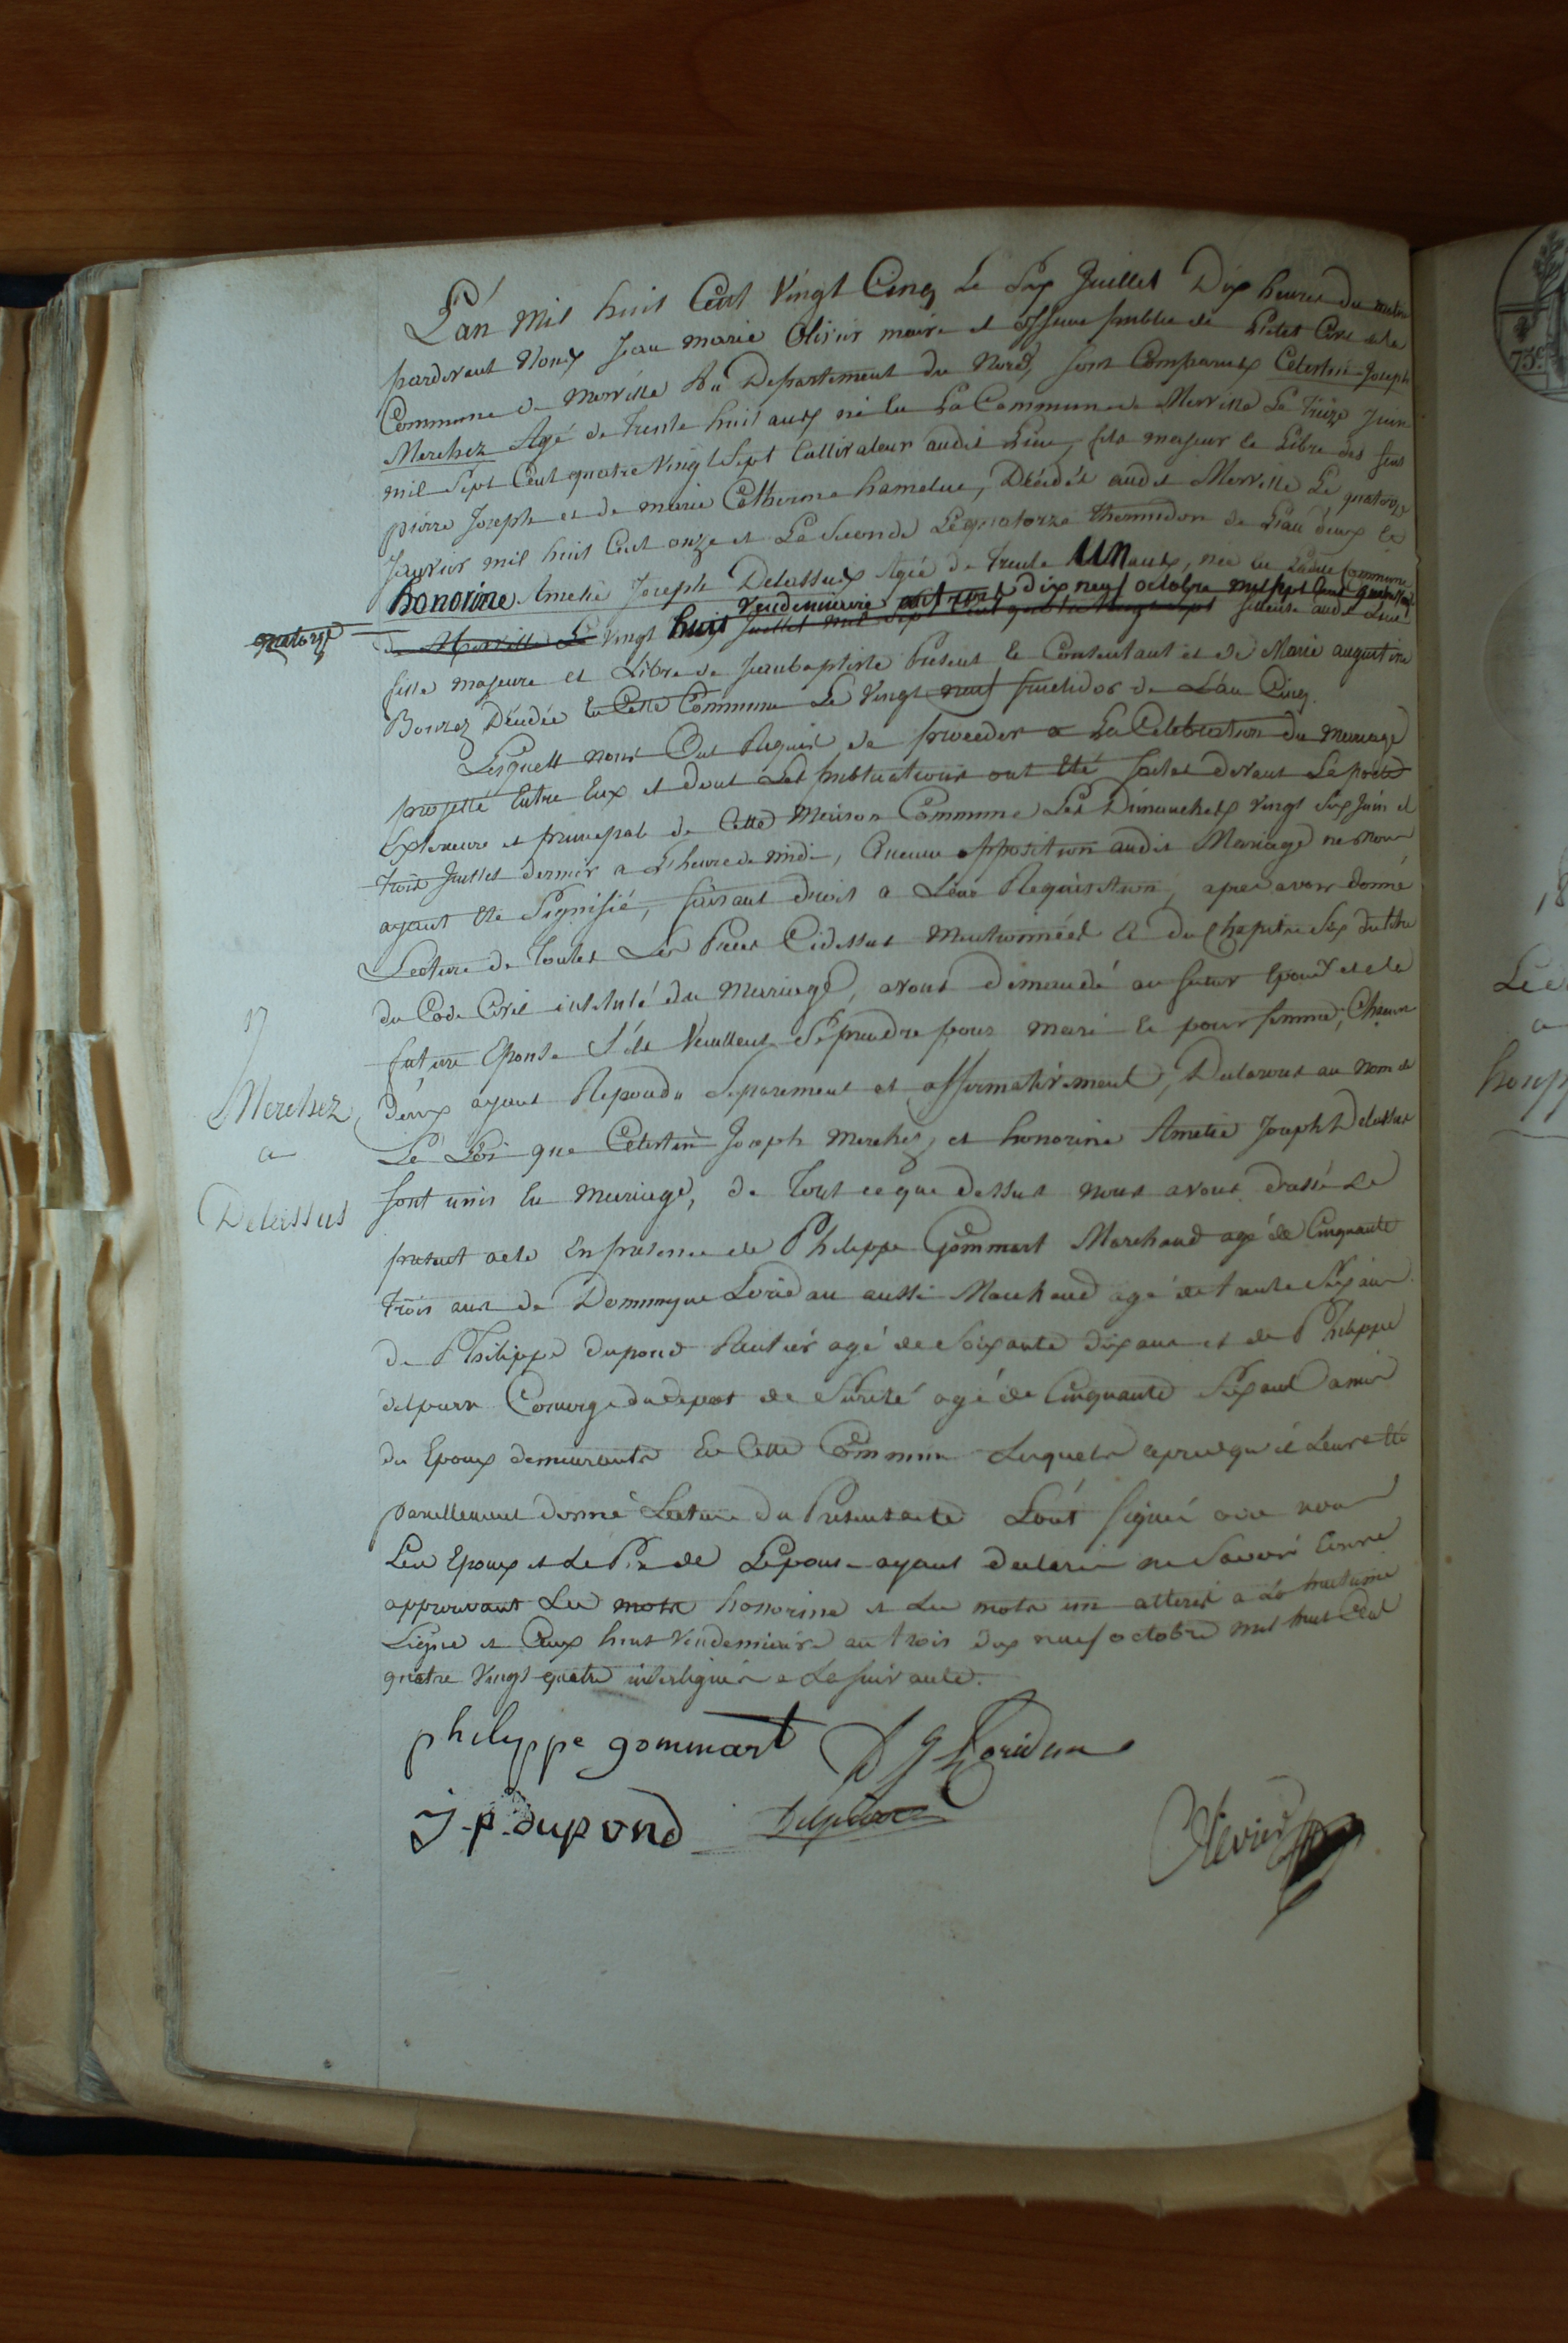 L'an Mil huit Cent Vingt Cinq Le Six Juillet Dix heures du matin
pardevant Nous Jean marie Olivier maire et officier public de L'Etat Civil de la
Commune de Merville Du Departement du Nord, sont Comparus Celestin Joseph
Merchez Agé de Trente huit ans né en La Commune de Merville Le Treize Juin
mil Sept Cent quatre Vingt Sept Cultivateur audit Lieu, fils majeur et Libre des feus
pierre Joseph et de marie Catherine hamelue, Décédés audit Merville Le quatorze
Janvier mil huit Cent onze et La Seconde Le quatorze thermidor de L'an deux Et
honorine Amelie Joseph Delassus Agée de Trente un ans, née en Ladite Commune
Vendemiaire an trois Dix neuf octobre mil sept Cent quatre Vingt
quatorze
de Merville Le Vingt huit Juillet mil Sept Cent quatre Vingt Sept fileuse audit Lieu
fille majeure et Libre de Jeanbaptiste Present et Consentant et de Marie augustine
Bourez Décédée En Cette Commune Le Vingt neuf fructidor de L'an Cinq.
Lesquels nous Ont Requis de proceder a La Celebration du mariage
projetté Entre Eux et dont Les publications ont Eté faites devant La porte
Exterieure et principale de Cette Maison Commune Les Dimanches Vingt Six Juin et
trois Juillet dernier a L'heure de midi, Aucune opposition audit Mariage ne nous
ayant Eté Signifié, faisant droit a Leur Requisition, apres avoir donné
Lecture de Toutes Les Pieces Cidessus Mentionnées Et du Chapitre Six du titre
du Code Civil intitulé du Mariage, avons Demandé au futur Epoux et a la
future Epouse S'ils Veullent Se prendre pour mari et pour femme, Chacun
d'eux ayant Repondu Separement et affirmativement, Declarons au nom de
La Loi que Celestin Joseph Merchez, et honorine Amelie Joseph Delassus
sont unis En Mariage, de Tout ce que dessus nous avons drassé Le
present acte En presence de Philippe Gommart Marchand agé de Cinquante
trois ans de Dominique Loridan aussi Marchand agé de trente Six ans
de Philippe dupond Rentier agé de Soixante dix ans et de Philippe
Concierge du depot de Sureté agé de Cinquante Six ans amis
des Epoux demeurants En Cette Commune Lesquels apres qu'il Leur a Eté
pareillement donné Lecture du Present acte L'ont Signé avec nous
Les Epoux et Le Pere de L'epouse ayant declaré ne Savoir Ecrire
approuvant Les mots honorine et Les mots un alterés a La huitieme
Ligne et Ceux huit Vendemiaire an trois dix neuf octobre mil huit Cent
quatre Vingt quatre interlignés a La suivante.
17
Merchez
a
Delassus
philippe gommart D J Loridan
J-p-dupond
Olivier
73